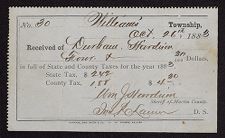 No. 30 Williams Township,
Oct. 26th 1883
Received of Durham Hardison
Four & 30/100 Dollars,
in full of State and County Taxes for the year 1883
State Tax, $ 2.42
County Tax, 1.88 $ 4.30
Wm J Hardison
Sheriff of Martin County
D. S.